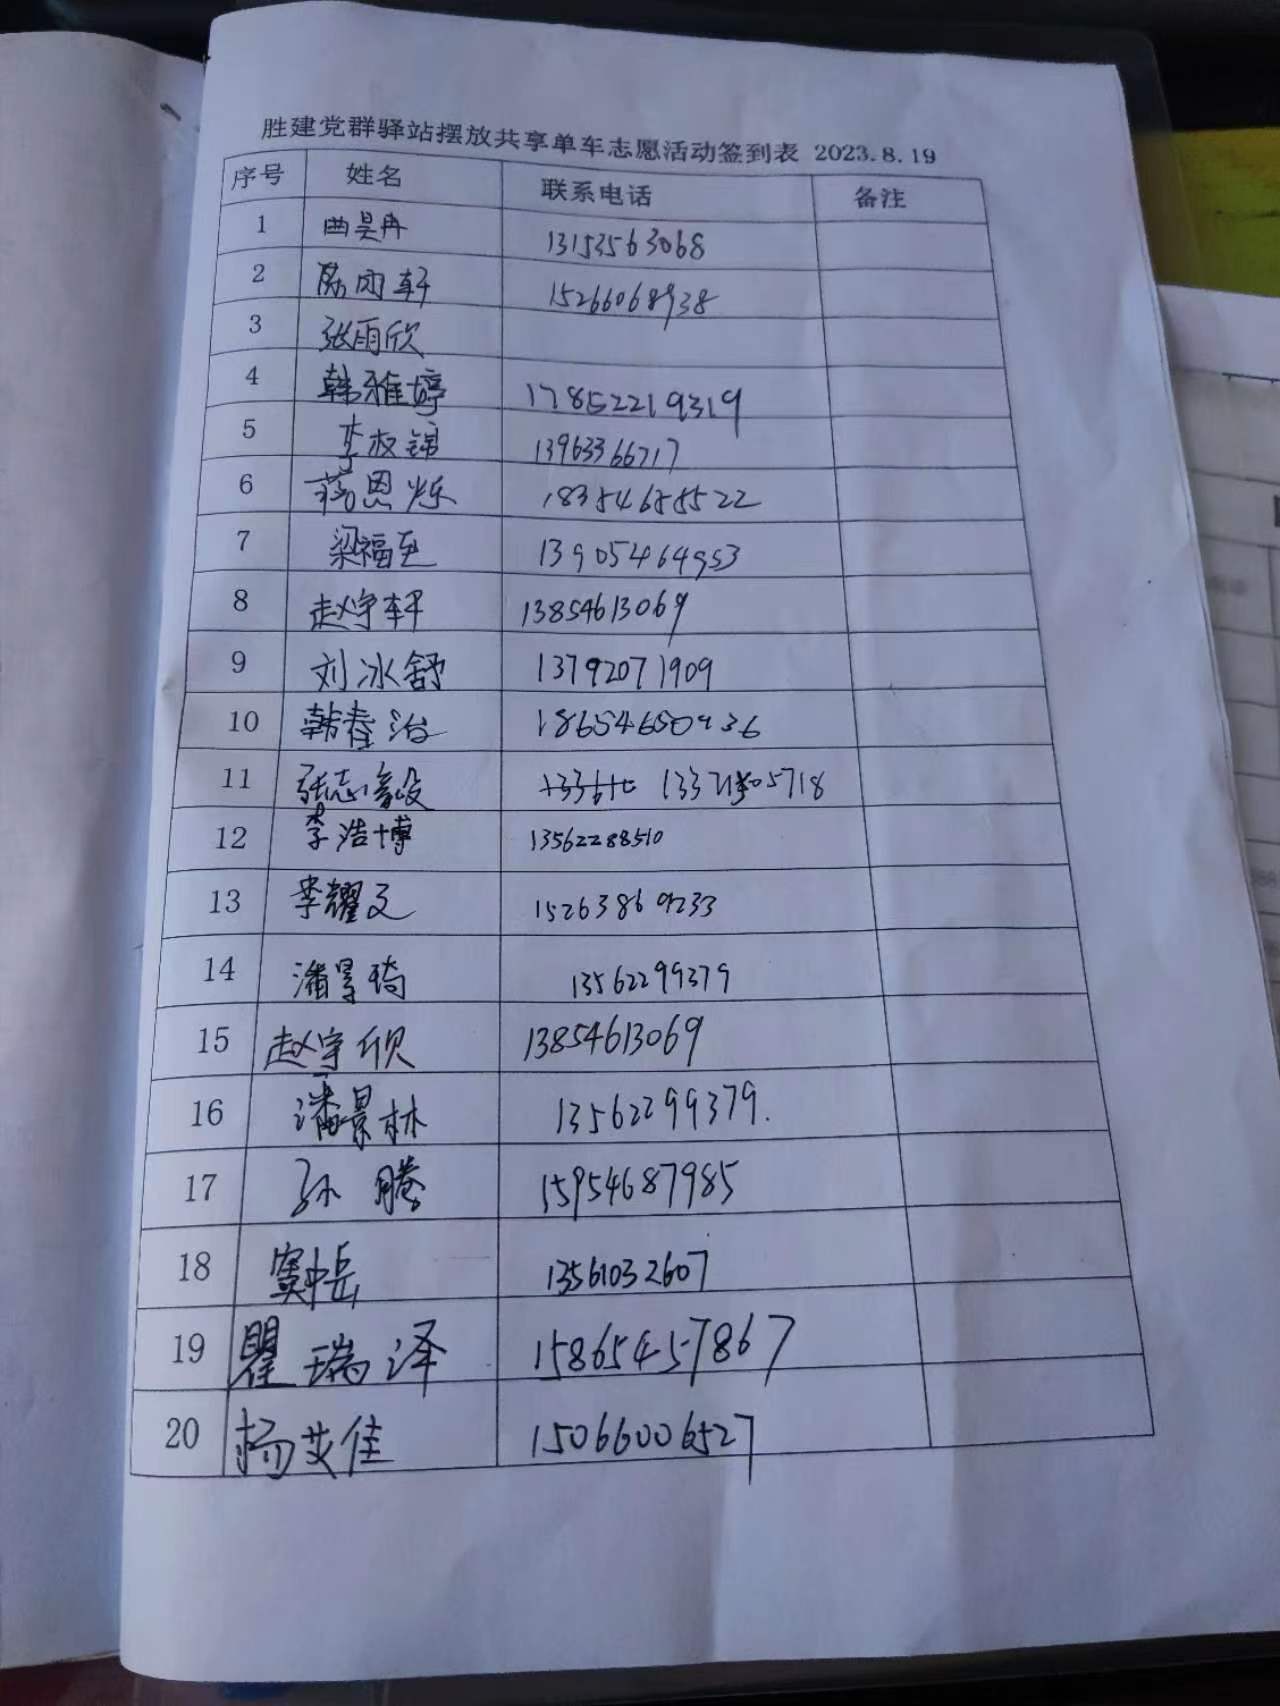 胜建党群驿站摆放共享单车志愿活动签到表 2023.8.19
序号 姓名 联系电话 备注
1 曲昊冉 13153563068
2 陈雨轩 15266068938
3 张雨欣
4 韩雅婷 17852219319
5 李权锦 13963366717
6 蒋恩烁 18384688522
7 梁福至 13905464953
8 赵宇轩 13854613069
9 刘冰舒 13792071909
10 韩春治 18654650936
11 张志毅 13321305718
12 李浩博 13562288510
13 李耀文 15263869233
14 潘景琦 13562299379
15 赵宇欣 13854613069
16 潘景林 13562299379.
17 孙腾 15954687985
18 窦中岳 13561032607
19 瞿瑞泽 15865457867
20 杨艾佳 15066006527